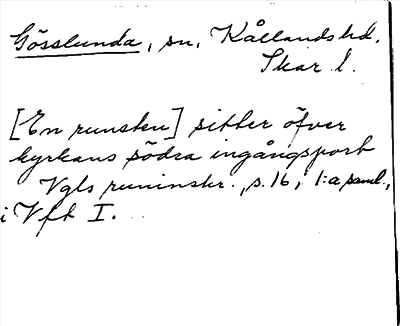 Gösslunda, sn, Kållands hd.
Skar. l.
[En runsten] sitter öfver
kyrkans södra ingångsport
Vgls runinskr., s. 16, i 1:a saml.,
i Vft I.